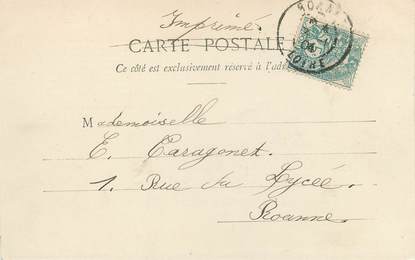 Imprimé.
CARTE POSTALE
Ce côté est exclusivement réservé à l'adr
ROANNE
04
LOIRE
Mademoiselle
E. Caragonet.
1. Rue du Lycée.
Roanne.